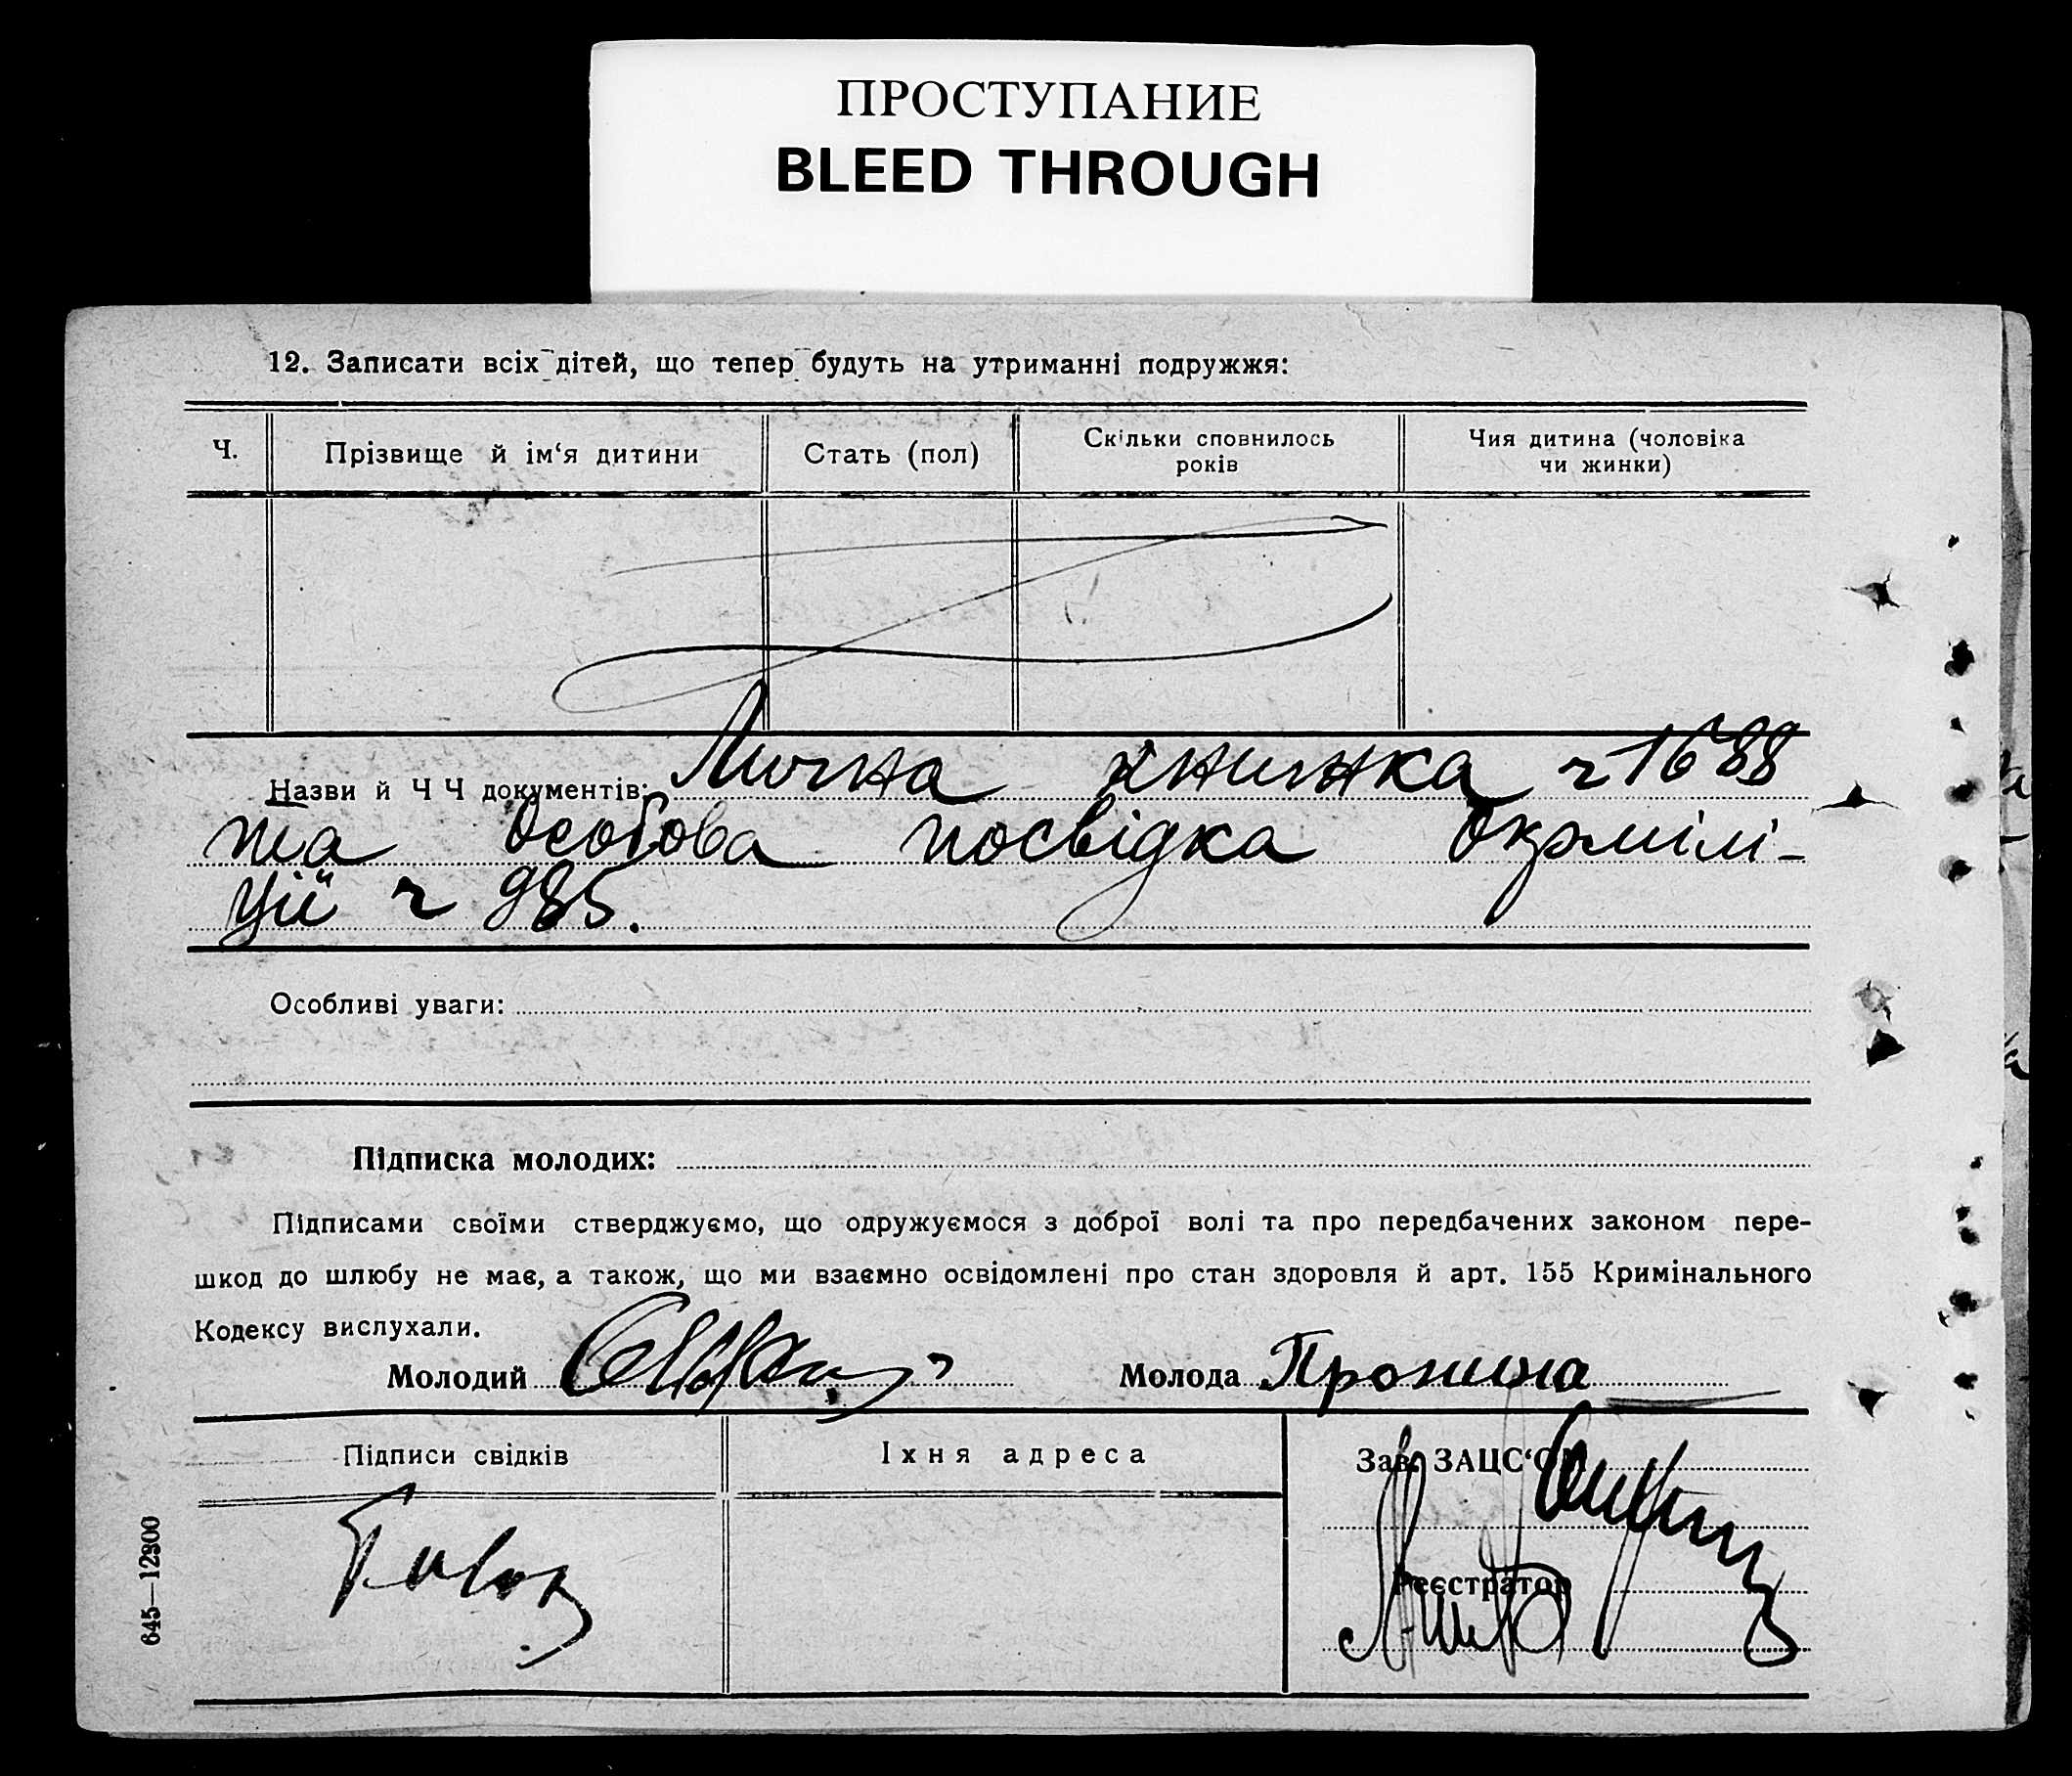 ПРОСТУПАНИЕ
BLEED THROUGH
12. Записати всіх дітей, що тепер будуть на утриманні подружжя:
Ч.
Прізвище й ім‘я дитини
Стать (пол)
Скільки сповнилось
років
Чия дитина (чоловіка
чи жинки)
Назви й Ч Ч документів: Лична книжка ч 1688
та особова посвідка Окрмілі-
ції ч 985.
Особливі уваги:
Підписка молодих:
Підписами своїми стверджуємо, що одружуємося з доброї волі та про передбачених законом пере-
шкод до шлюбу не має, а також, що ми взаємно освідомлені про стан здоровля й арт. 155 Кримінального
Кодексу вислухали.
Молодий
Молода Пронина
Підписи свідків
Їхня адреса
Зав. ЗАЦС‘ОМ
Реєстратор
645—12300